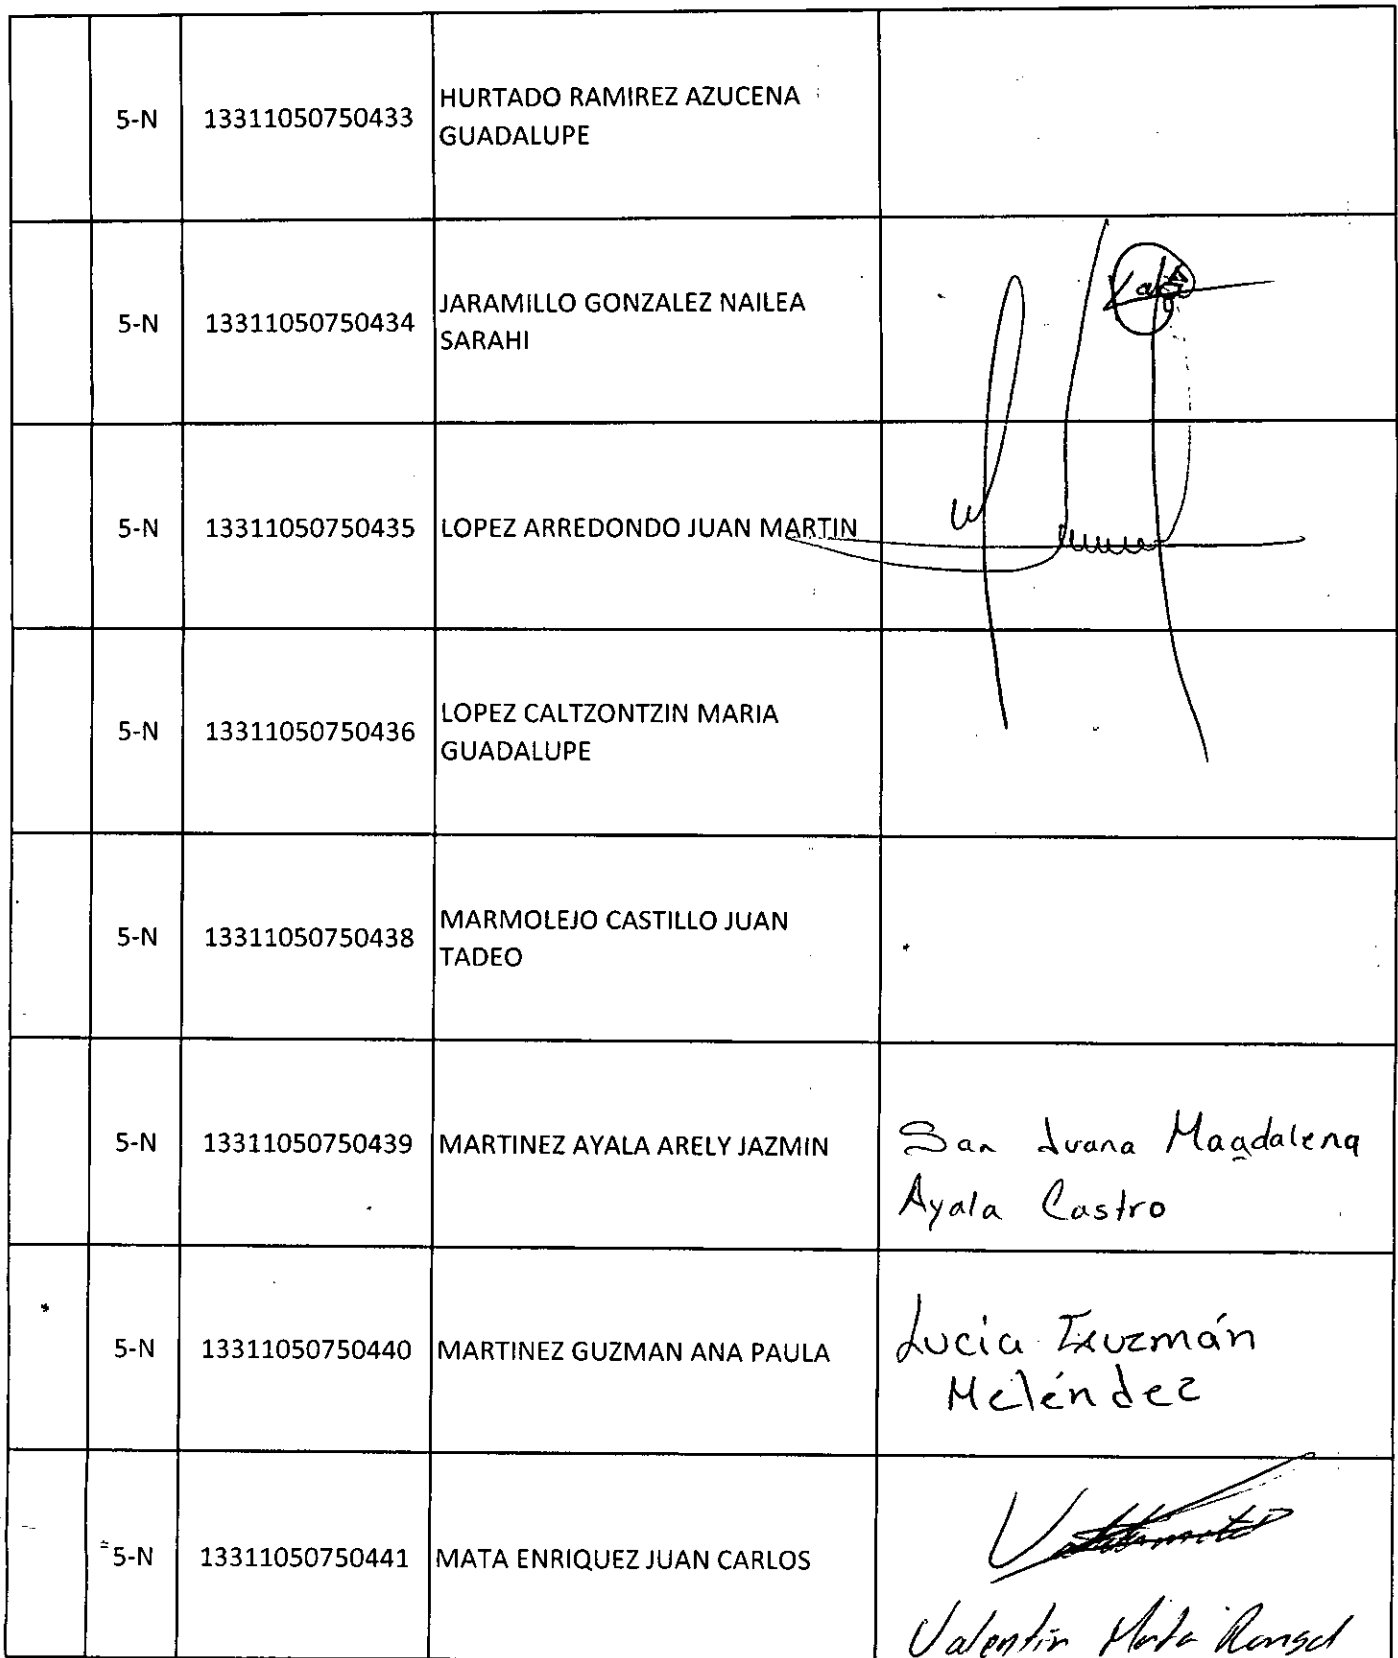 5-N 13311050750433 HURTADO RAMIREZ AZUCENA
GUADALUPE
5-N 13311050750434 JARAMILLO GONZALEZ NAILEA
SARAHI
5-N 13311050750435 LOPEZ ARREDONDO JUAN MARTIN
5-N 13311050750436 LOPEZ CALTZONTZIN MARIA
GUADALUPE
5-N 13311050750438 MARMOLEJO CASTILLO JUAN
TADEO
5-N 13311050750439 MARTINEZ AYALA ARELY JAZMIN San Juana Magdalena
Ayala Castro
5-N 13311050750440 MARTINEZ GUZMAN ANA PAULA Lucia Guzmán
Meléndez
5-N 13311050750441 MATA ENRIQUEZ JUAN CARLOS
Valentin Mata Rangel